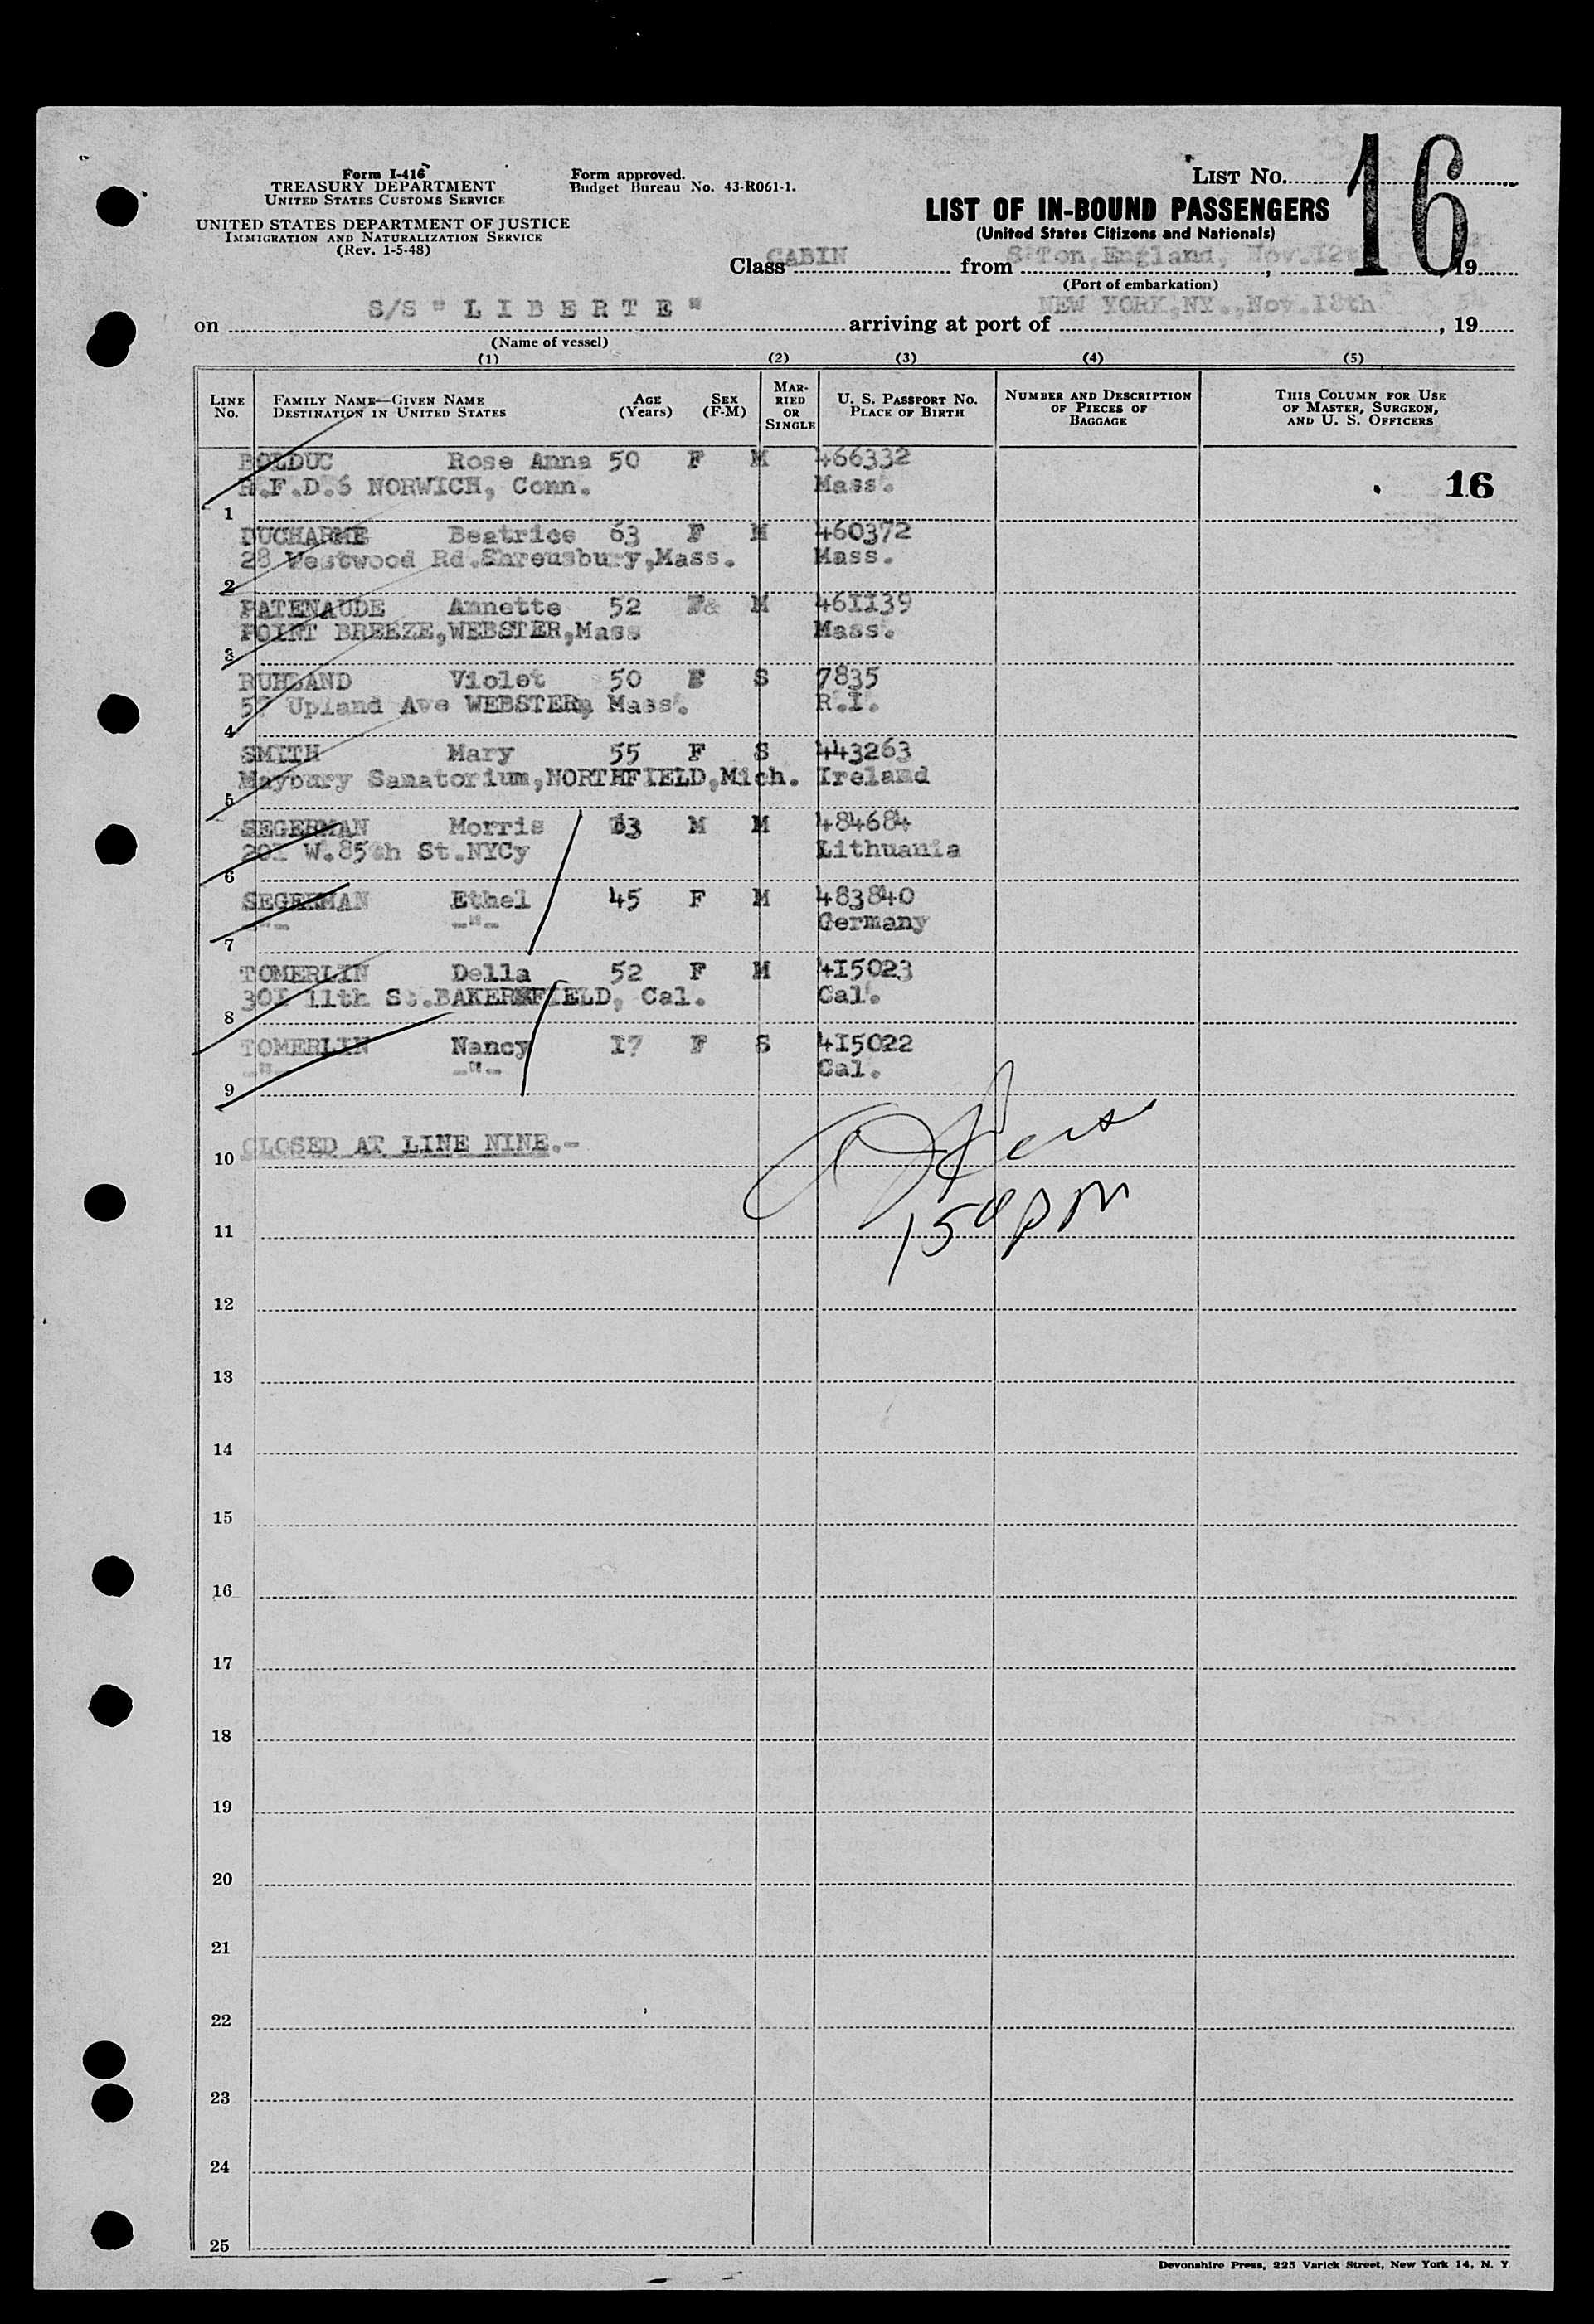 Form I-416
TREASURY DEPARTMENT
UNITED STATES CUSTOMS SERVICE
UNITED STATES DEPARTMENT OF JUSTICE
IMMIGRATION AND NATURALIZATION SERVICE
(Rev. 1-5-48)
Form approved.
Budget Bureau No. 43-R061-1.
LIST NO. 16
LIST OF IN-BOUND PASSENGERS
(United States Citizens and Nationals)
Class CABIN from S'Ton, England, Nov.12t , 19
(Port of embarkation)
on S/S " L I B E R T E " arriving at port of NEW YORK,NY.,Nov.18th , 19 54
(Name of vessel)
(1) (2) (3) (4) (5)
LINE No. FAMILY NAME—GIVEN NAME DESTINATION IN UNITED STATES AGE (Years) SEX (F-M) MARRIED OR SINGLE U. S. PASSPORT NO. PLACE OF BIRTH NUMBER AND DESCRIPTION OF PIECES OF BAGGAGE THIS COLUMN FOR USE OF MASTER, SURGEON, AND U. S. OFFICERS
BOLDUC Rose Anna 50 F M 466332
R.F.D.6 NORWICH, Conn. Mass. 16
1
DUCHARME Beatrice 63 F M 460372
28 Westwood Rd.Shreusbury,Mass. Mass.
2
PATENAUDE Annette 52 F& M 461139
POINT BREEZE,WEBSTER,Mass Mass.
3
RUHLAND Violet 50 F S 7835
57 Upland Ave WEBSTER, Mass. R.I.
4
SMITH Mary 55 F S 443263
Maybury Sanatorium,NORTHFIELD,Mich. Ireland
5
SEGERMAN Morris 63 M M 484684
201 W.85th St.NYCy Lithuania
6
SEGERMAN Ethel 45 F M 483840
-"- -"- Germany
7
TOMERLIN Della 52 F M 415023
301 11th St.BAKERSFIELD, Cal. Cal.
8
TOMERLIN Nancy 17 F S 415022
-"- -"- Cal.
9
CLOSED AT LINE NINE.-
10
150 PM
11
12
13
14
15
16
17
18
19
20
21
22
23
24
25
Devonshire Press, 225 Varick Street, New York 14, N. Y.